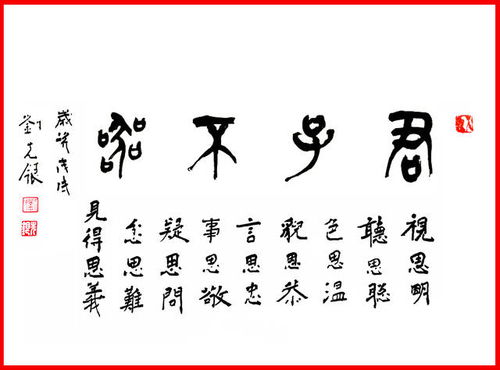 君子不器
視思明
聽思聰
色思温
貌思恭
言思忠
事思敬
疑思問
忿思難
見得思義
歲戊戌
劉克銀